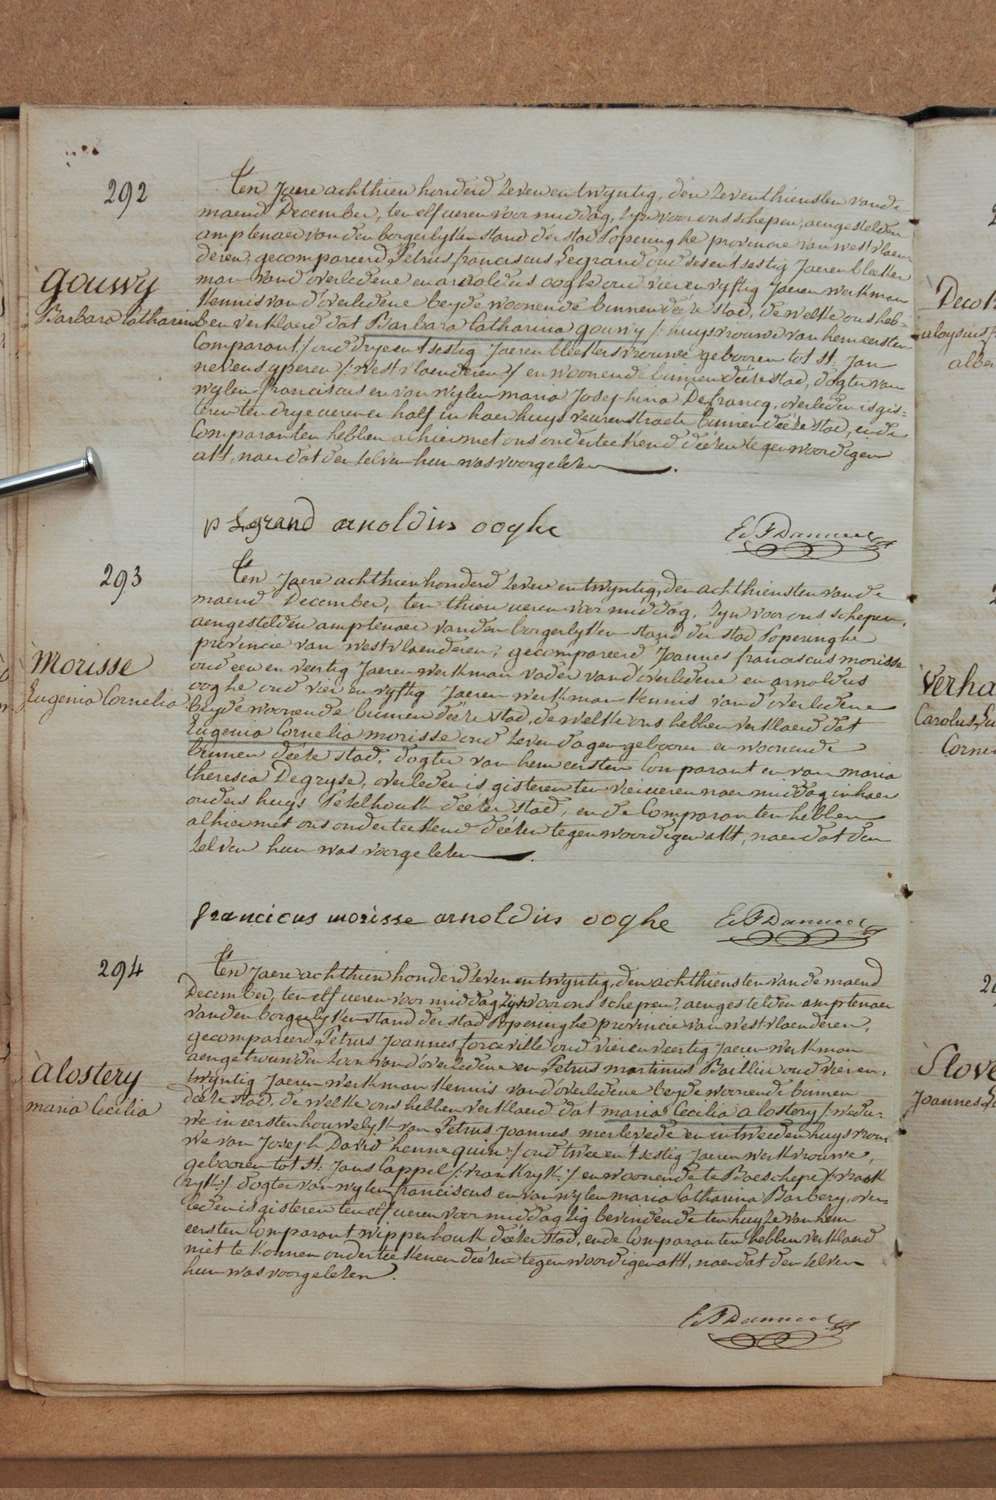 292
Ten Jaere achthien honderd Zeven en twyntig, den Zeventhiensten vande
maend December, ten elf ueren voor middag, Zyn voor ons schepen, aengestelden
amptenaer van den borgerlyken stand der stad Poperinghe provincie van westvlaen
deren, gecompareerd Petrus franciscus Legrand oud sesentsestig Jaeren bleeker
man vand'overledene en arnoldus ooghe oud vier en vyftig Jaeren werkman
Kennis van d'overledene beyde woonende binnen deéze stad, de welke ons heb-
gouwy
Barbara Catharina
ben verklaerd dat Barbara Catharina gouwy /: huysvrouwe van hem eersten
Comparant :/ oud dryeentsestig Jaeren bleekersvrouwe gebooren tot St. Jan
nevens yperen /: westvlaenderen :/ en woonende binnen deéze stad, dogter van
wylen franciscus en van wylen maria Josephina Defrancq, overleden is gis-
teren ten drye ueren en half in haer huys veurenstraete binnen deéze stad, en de
Comparanten hebben alhier met ons onderteekend deézen tegenwoordigen
akt, naer dat den zelven hun was voorgelezen.
p Legrand arnoldus ooghe
293
Ten Jaere achthien honderd Zeven en twyntig, den achthiensten vande
maend December, ten thien ueren voor middag, Zyn voor ons schepen,
aengestelden amptenaer van den borgerlyken stand der stad Poperinghe
provincie van westvlaenderen, gecompareerd Joannes franciscus morisse
oud een en veertig Jaeren werkman vader vand'overledene en arnoldus
ooghe oud vier en vyftig Jaeren werkman Kennis vand'overledene
morisse
Eugenia Cornelia
beyde woonende binnen deéze stad, de welke ons hebben verklaerd dat
Eugenia Cornelia morisse oud Zeven dagen gebooren en woonende
binnen deéze stad, dogter van hem eersten Comparant en van maria
theresia Degryse, overleden is gisteren ten vier ueren naer middag in haer
ouders huys Pezelhoek deézer stad, en de Comparanten hebben
alhier met ons onderteekend deézen tegenwoordigen akt, naer dat den
zelven hun was voorgelezen.
francicus morisse arnoldus ooghe
294
Ten Jaere achthien honderd Zeven en twyntig, den achthiensten vande maend
December, ten elf ueren voor middag Zyn voor ons schepen, aengestelden amptenaer
van den borgerlyken stand der stad Poperinghe provincie van westvlaenderen,
gecompareerd Petrus Joannes forceville oud vier en veertig Jaeren werkman
aengetrouwden zoon vand'overledene en Petrus martinus Baillin oud vier en
twyntig Jaeren werkman Kennis vand'overledene beyde woonende binnen
alostery
maria Cecilia
deéze stad, de welke ons hebben verklaerd dat maria Cecilia alostery /: wedu-
we in eersten houwelyk van Petrus Joannes merlevede en in tweeden huysvrou
we van Joseph David hennequin :/ oud twee entsestig Jaeren werkvrouwe,
gebooren tot St. Jans Cappel /: vrankryk :/ en woonende te Boeschepe /: vrank
ryk :/ dogter van wylen franciscus en van wylen maria Catharina Barbery, over
leden is gisteren ten elf ueren voor middag Zig bevindende ten huyze van hem
eersten Comparant wipperhoek deézer stad, en de Comparanten hebben verklaerd
niet te konnen onderteekenen deézen tegenwoordigen akt, naer dat den zelven
hun was voorgelezen.
Verha
Carolus
Corne
Slove
Joannes